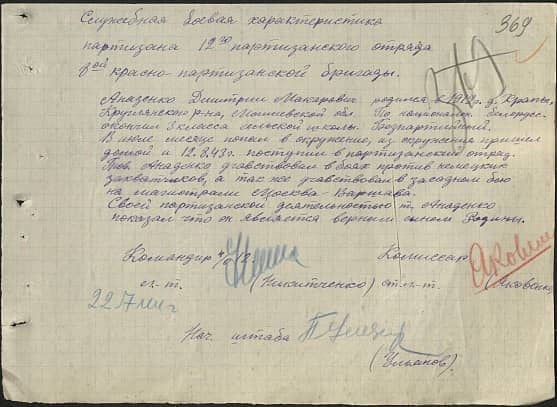 369
Служебная боевая характеристика
партизана 12го партизанского отряда
8ой красно-партизанской бригады.
Анаденко Дмитрий Макарович родился в 1912г. д. Крапы,
Круглянского р-на, Могилевской обл. По национальн. белорус.
окончил 3 класса сельской школы. Безпартийный.
В июле месяце попал в окружение, из окружения пришел
домой и 12.8.43г. поступил в партизанский отряд.
Тов. Анаденко участвовал в боях против немецких
захватчиков, а так же учавствовал в засадном бою
на магистрали Москва-Варшава.
Своей партизанской деятельностью т. Анаденко
показал что он является верным сыном Родины.
Командир Комиссар
(Никитченко) ст. л-т. (Яковенко)
Нач. штаба
(Ульянов).